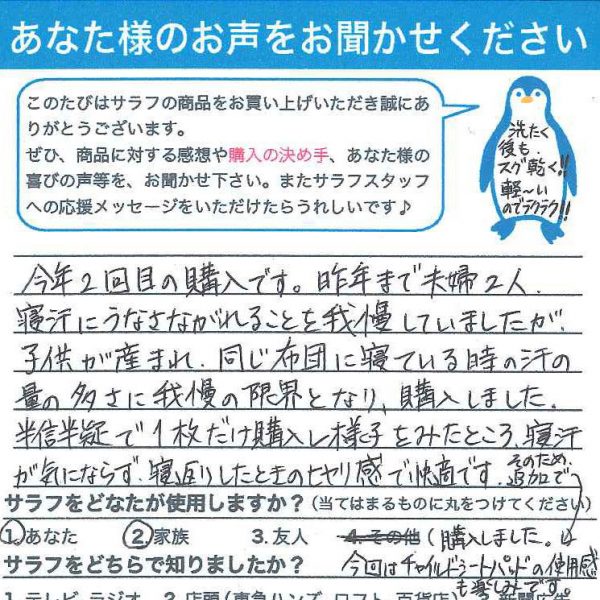 あなた様のお声をお聞かせください
このたびはサラフの商品をお買い上げいただき誠にあ
りがとうございます。
ぜひ、商品に対する感想や購入の決め手、あなた様の
喜びの声等を、お聞かせ下さい。またサラフスタッフ
への応援メッセージをいただけたらうれしいです♪
洗たく
後も、
スグ乾く!!
軽〜い
のでラクラク!!
今年2回目の購入です。昨年まで夫婦2人、
寝汗にうなさながれることを我慢していましたが、
子供が産まれ、同じ布団に寝ている時の汗の
量の多さに我慢の限界となり、購入しました。
半信半疑で1枚だけ購入し様子をみたところ、寝汗
が気にならず、寝返りしたときのヒヤリ感で快適です。そのため、追加で
サラフをどなたが使用しますか?(当てはまるものに丸をつけてください)
1.あなた 2.家族 3.友人 4.その他(購入しました。
サラフをどちらで知りましたか?
今回はチャイルドシートパッドの使用感
も楽しみです。
1.テレビ・ラジオ 2.店頭(東急ハンズ、ロフト、百貨店)